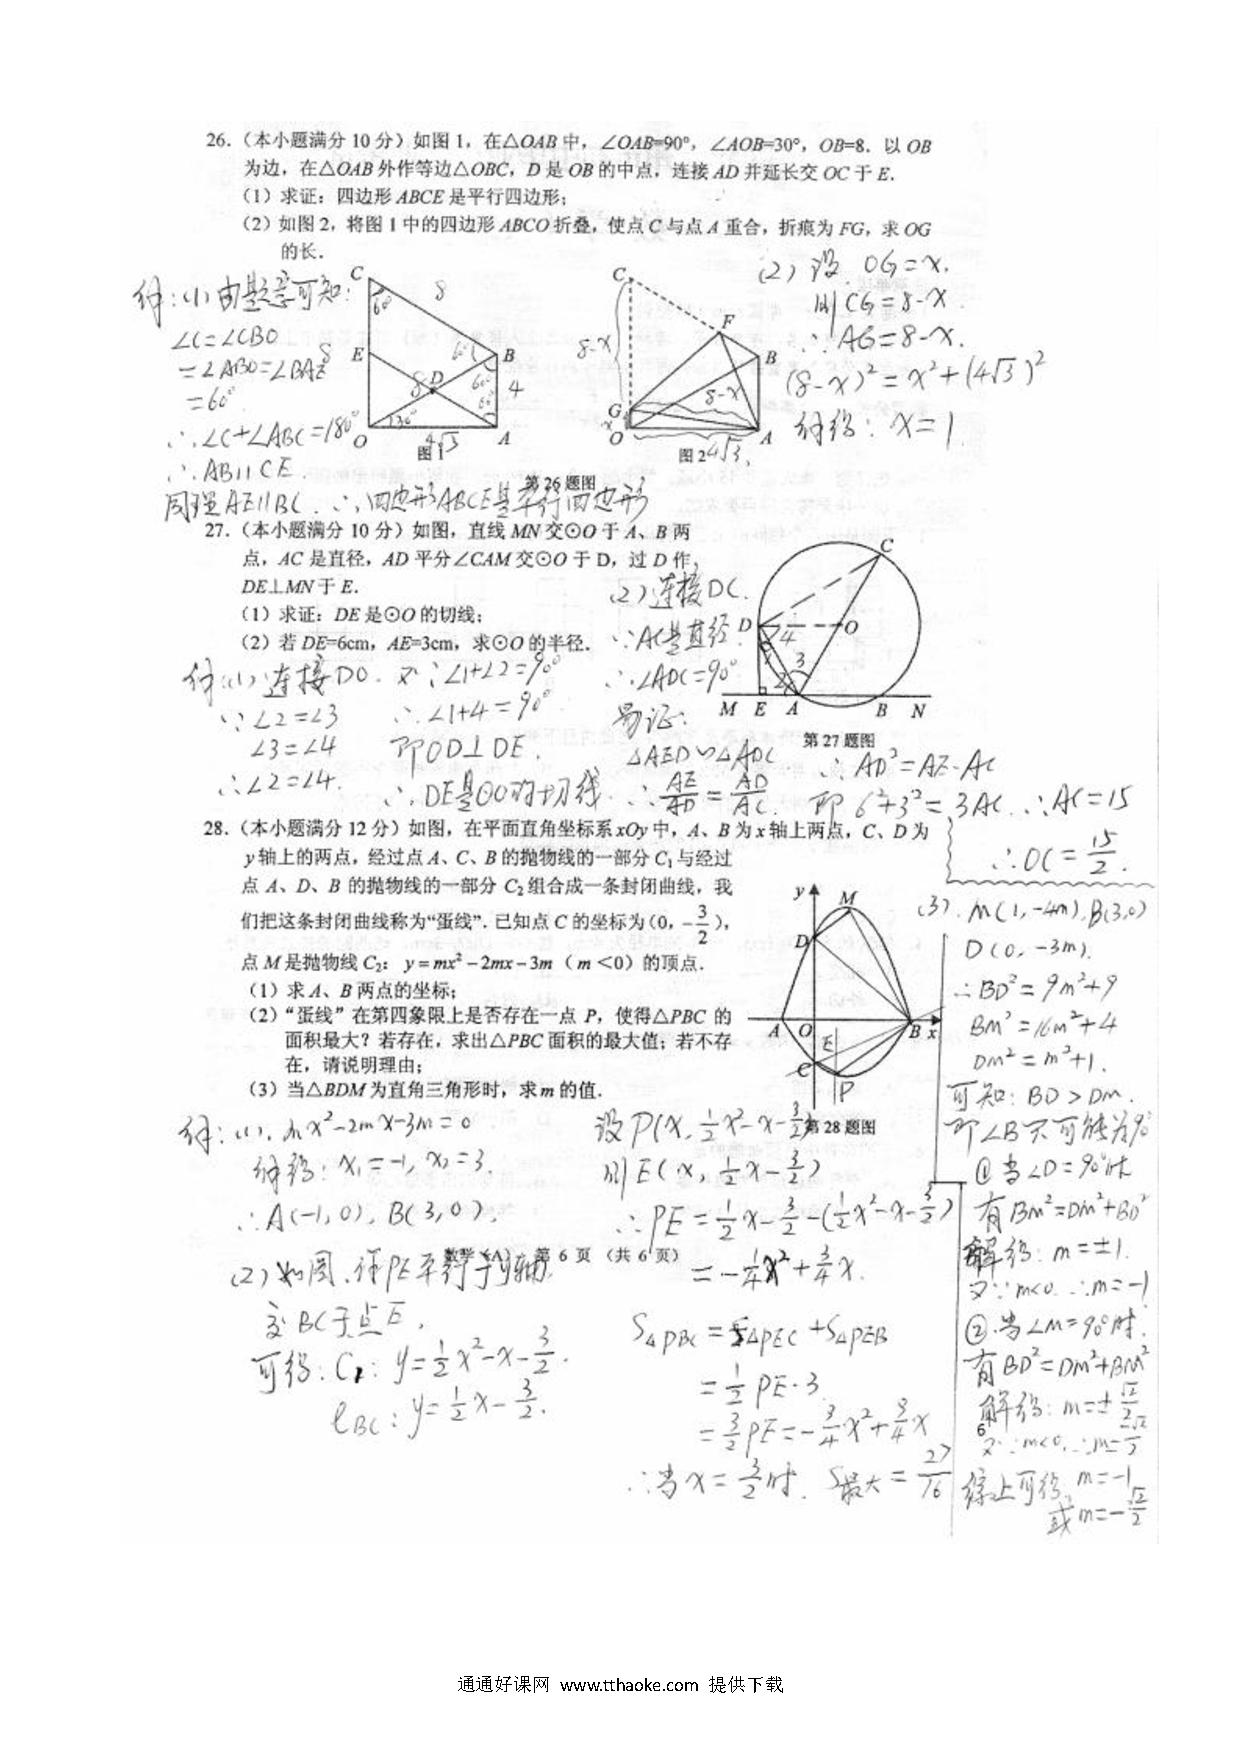 26.（本小题满分 10 分）如图 1，在△OAB 中，∠OAB=90°，∠AOB=30°，OB=8．以 OB
为边，在△OAB 外作等边△OBC，D 是 OB 的中点，连接 AD 并延长交 OC 于 E．
（1）求证：四边形 ABCE 是平行四边形；
（2）如图 2，将图 1 中的四边形 ABCO 折叠，使点 C 与点 A 重合，折痕为 FG，求 OG
的长．
解：(1) 由题意可知：
∠C=∠CBO
=∠ABO=∠BAE
=60°
∴∠C+∠ABC=180°
∴AB∥CE
同理AE∥BC．∴四边形ABCE是平行四边形
C
60°
8
8
E
60°
B
8
D
60°
4
60°
30°
O
4√3
A
图 1
C
F
8-x
B
8-x
G
x
O
4√3
A
图 2
第 26 题图
(2) 设 OG=x.
则 CG=8-x
∴AG=8-x.
(8-x)²=x²+(4√3)²
解得：x=1
27.（本小题满分 10 分）如图，直线 MN 交⊙O 于 A、B 两
点，AC 是直径，AD 平分∠CAM 交⊙O 于 D，过 D 作
DE⊥MN 于 E．
（1）求证：DE 是⊙O 的切线；
（2）若 DE=6cm，AE=3cm，求⊙O 的半径．
解：(1) 连接DO.
∵∠2=∠3
∠3=∠4
∴∠2=∠4.
又∵∠1+∠2=90°
∴∠1+4=90°
即OD⊥DE.
∴DE是⊙O的切线
(2) 连接DC.
∵AC是直径
∴∠ADC=90°
易证：
△AED∽△ADC
∴AE/AD=AD/AC.
C
D
4
O
1
3
2
M E A B N
第 27 题图
∴AD²=AE·AC
即 6²+3²=3AC.∴AC=15
∴OC=15/2.
28.（本小题满分 12 分）如图，在平面直角坐标系 xOy 中，A、B 为 x 轴上两点，C、D 为
y 轴上的两点，经过点 A、C、B 的抛物线的一部分 C₁ 与经过
点 A、D、B 的抛物线的一部分 C₂ 组合成一条封闭曲线，我
们把这条封闭曲线称为“蛋线”．已知点 C 的坐标为（0，-3/2），
点 M 是抛物线 C₂：y=mx²-2mx-3m（m<0）的顶点．
（1）求 A、B 两点的坐标；
（2）“蛋线”在第四象限上是否存在一点 P，使得△PBC 的
面积最大？若存在，求出△PBC 面积的最大值；若不存
在，请说明理由；
（3）当△BDM 为直角三角形时，求 m 的值．
y
M
D
A
O
B
x
E
C
P
第 28 题图
解：(1). mx²-2mx-3m=0
解得：x₁=-1, x₂=3.
∴A(-1,0), B(3,0).
(2) 如图,
PE平行于y轴
交BC于点E,
可得：C₁: y=1/2x²-x-3/2.
ℓBC: y=1/2x-3/2.
设P(x, 1/2x²-x-3/2)
则E(x, 1/2x-3/2)
∴PE=1/2x-3/2-(1/2x²-x-3/2)
S△PBC=S△PEC+S△PEB
=1/2PE·3
=3/2PE=-3/4x²+9/4x
∴当x=3/2时. S最大=27/16
数学（A） 第 6 页 （共 6 页）
(3). M(1,-4m), B(3,0)
D(0,-3m).
∴BD²=9m²+9
BM²=16m²+4
DM²=m²+1.
可知：BD>DM.
即∠B不可能为90°
①当∠D=90°时
有BM²=DM²+BD²
解得：m=±1.
又∵m<0.∴m=-1
②.当∠M=90°时.
有BD²=DM²+BM²
解得：m=±√2/2
6
综上可得. m=-1
或m=-√2/2
通通好课网 www.tthaoke.com 提供下载